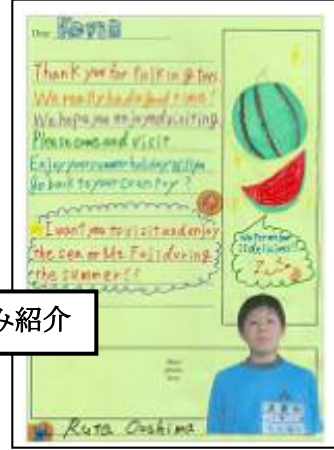 Dear Kevin
Thank you for talking to us.
We really had a good time!
We hope you enjoyed visiting
Please come and visit
Enjoy your summer holiday
Go back to your country?
I want you to visit and enjoy
the sea or Mt. Fuji during
the summer!!
Watermelon
is delicious!
み紹介
Ruta Ooshima